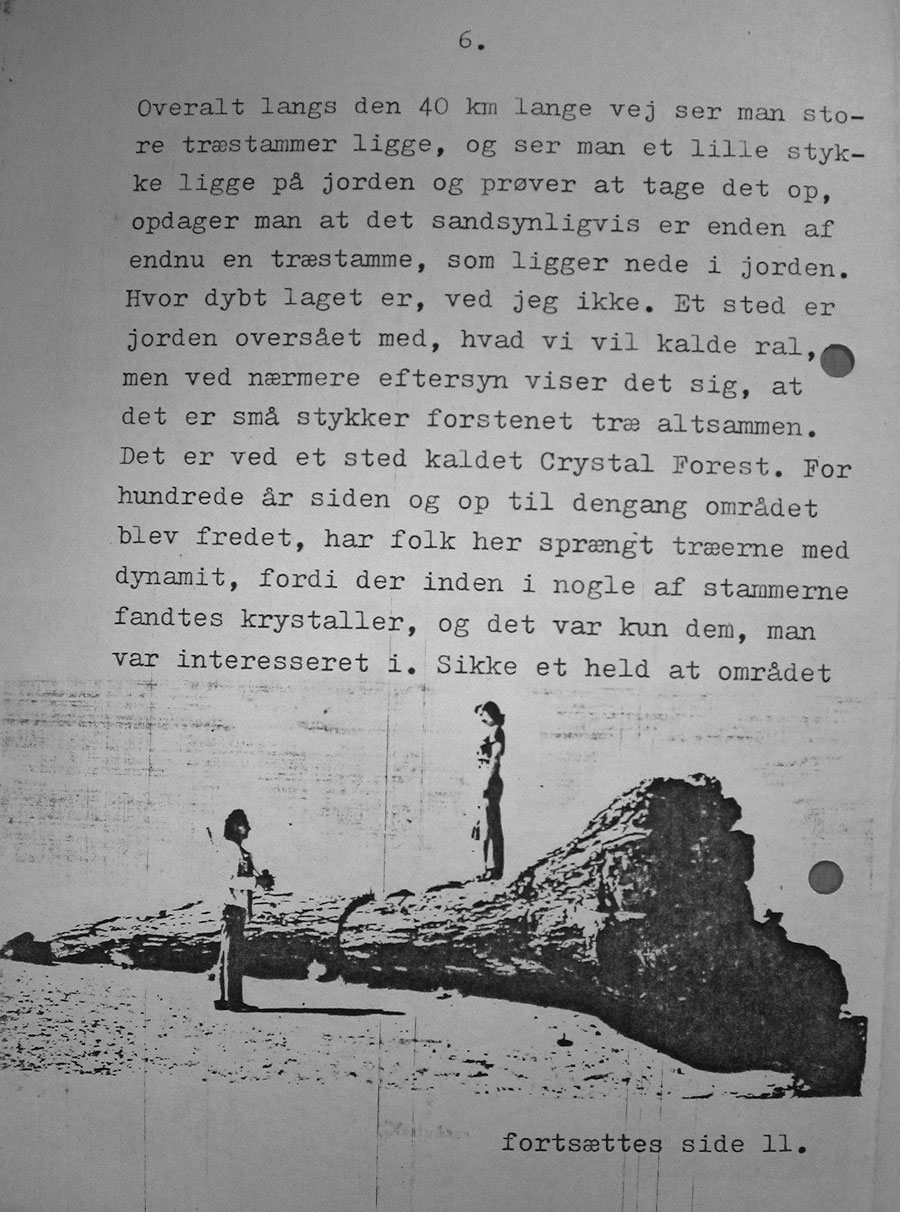 6.
Overalt langs den 40 km lange vej ser man sto-
re træstammer ligge, og ser man et lille styk-
ke ligge på jorden og prøver at tage det op,
opdager man at det sandsynligvis er enden af
endnu en træstamme, som ligger nede i jorden.
Hvor dybt laget er, ved jeg ikke. Et sted er
jorden oversået med, hvad vi vil kalde ral,
men ved nærmere eftersyn viser det sig, at
det er små stykker forstenet træ altsammen.
Det er ved et sted kaldet Crystal Forest. For
hundrede år siden og op til dengang området
blev fredet, har folk her sprængt træerne med
dynamit, fordi der inden i nogle af stammerne
fandtes krystaller, og det var kun dem, man
var interesseret i. Sikke et held at området
fortsættes side 11.